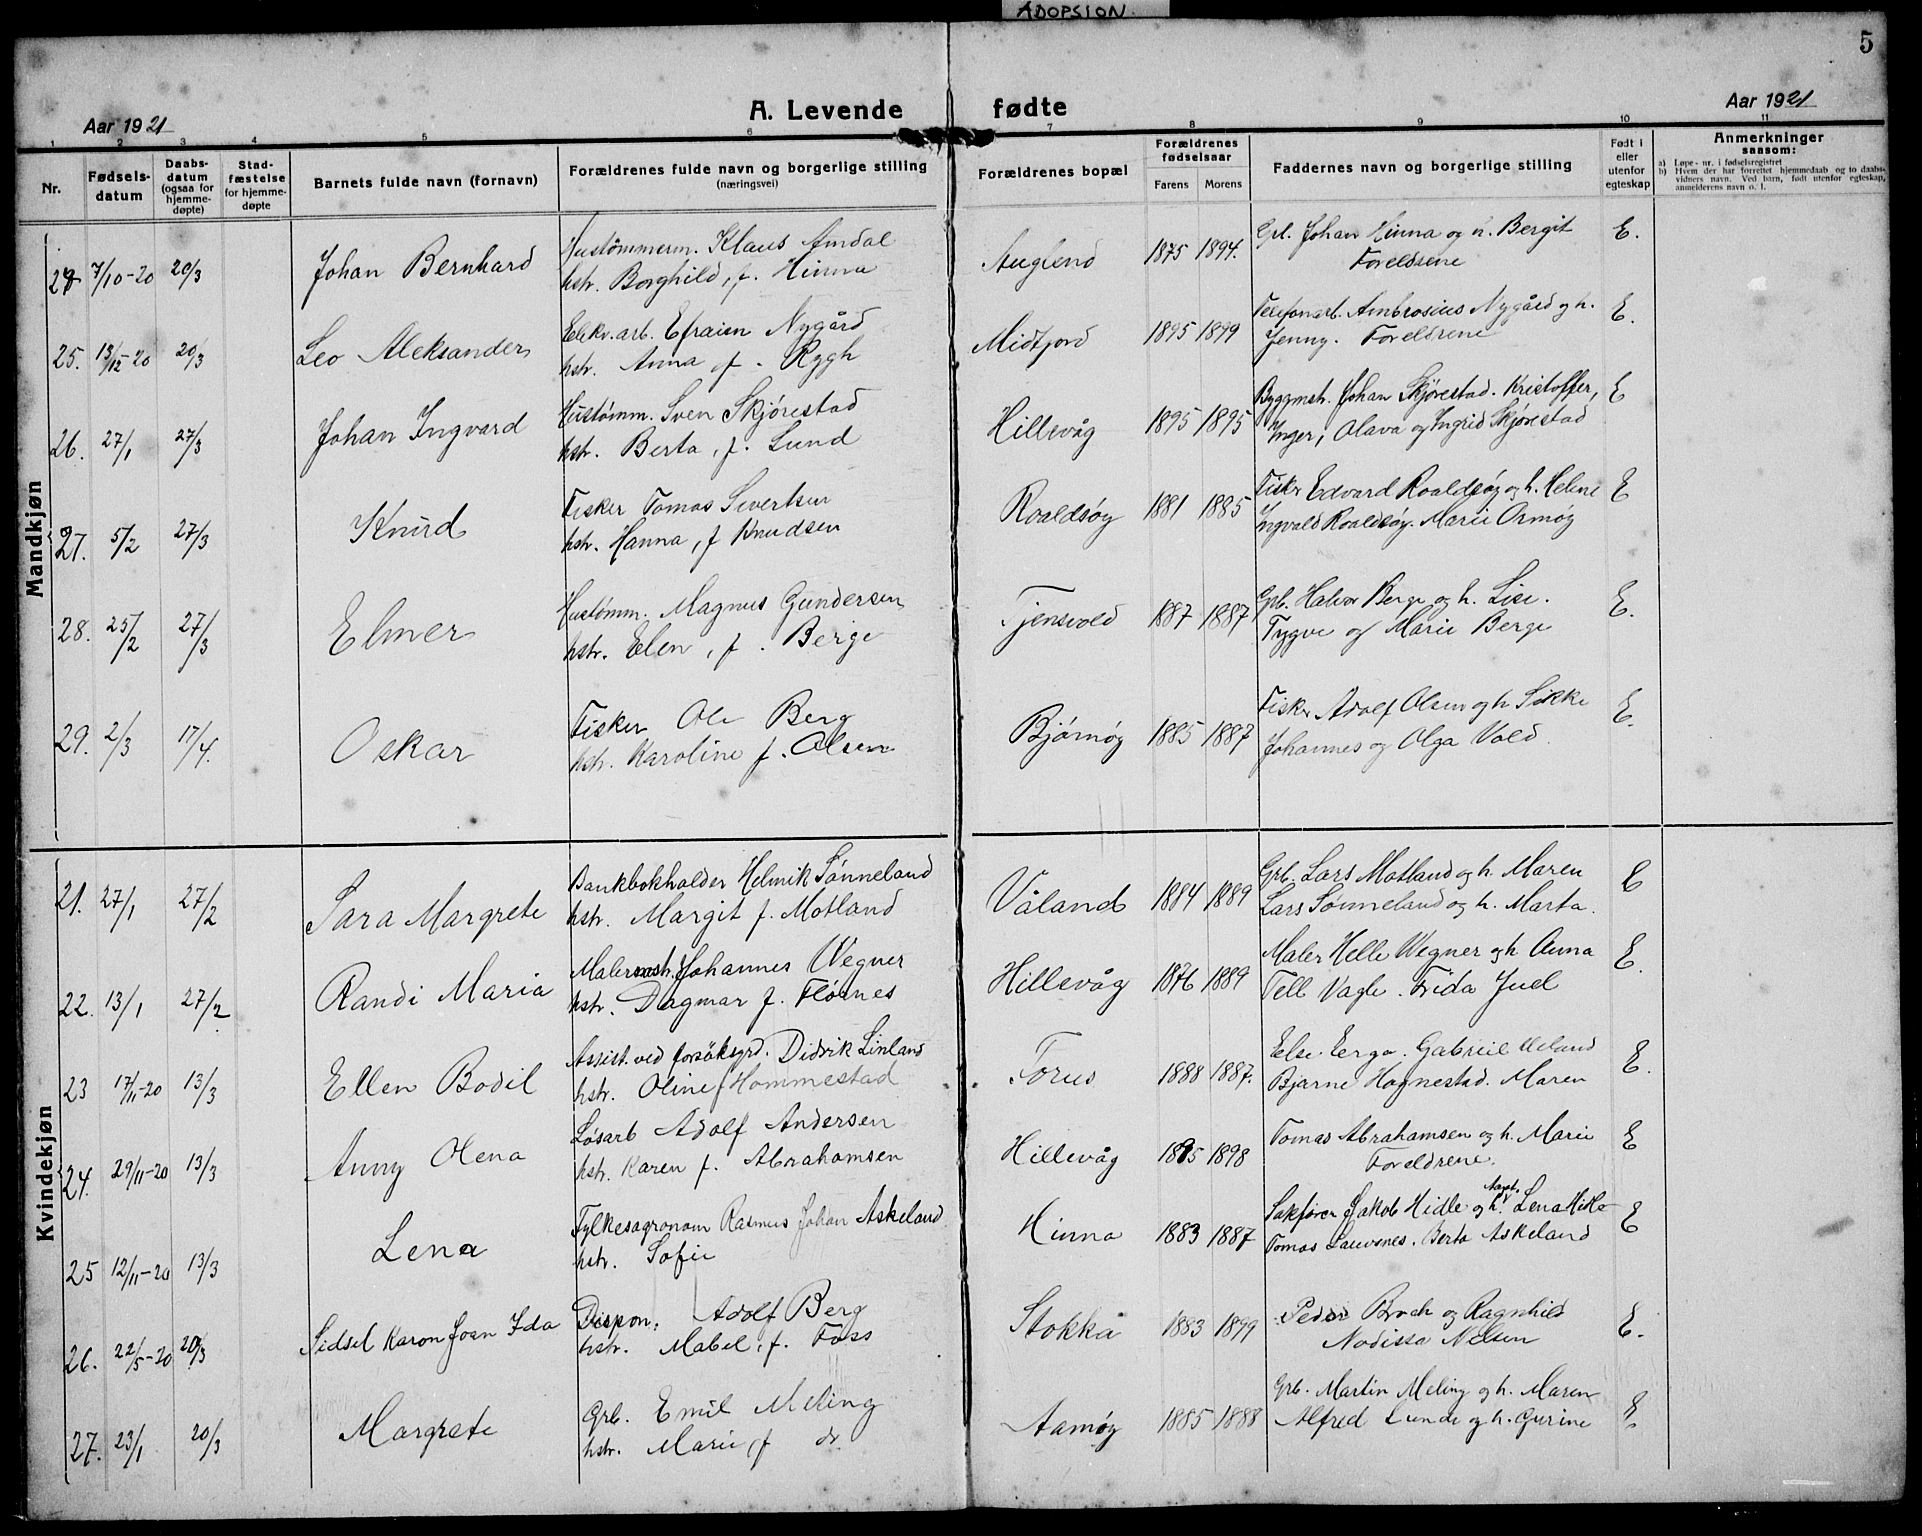 ADOPSION
5
Aar 1921 A. Levende fødte Aar 1921
1 2 3 4 5 6 7 8 9 10 11
Nr. Fødsels-datum Daabs-datum (ogsaa for hjemme-døpte) Stad-fæstelse for hjemme-døpte Barnets fulde navn (fornavn) Forældrenes fulde navn og borgerlige stilling (næringsvei) Forældrenes bopæl Forældrenes fødselsaar Farens Morens Faddernes navn og borgerlige stilling Født i eller utenfor egteskap Anmerkninger saasom:
a) Løpe-nr. i fødselsregistret
b) Hvem der har forrettet hjemmedaab og to daabs-vidners navn. Ved barn, født utenfor egteskap, anmelderens navn o. l.
Mandkjøn
24 7/10-20 20/3 Johan Bernhard Hustømmerm. Klaus Amdal Auglend 1875 1894. Grb. Johan Hinna og h. Bergit E.
hstr. Borghild, f. Hinna Foreldrene
25. 13/12-20 20/3 Leo Aleksander Elekv.arb. Efraim Nygård Midtfjord 1895 1899 Telefonarb. Ambrosius Nygård og h. E.
hstr. Anna f. Rygh Jenny. Foreldrene
26. 27/1 27/3 Johan Ingvard Hustømm. Sven Skjørestad Hillevåg 1895 1895 Byggmstr. Johan Skjørestad. Kristoffer, E
hstr. Berta, f. Lund Inger, Olava og Ingrid Skjørestad
27. 5/2 27/3 Knud Fisker Tomas Sivertsen Roaldsøy 1881 1885 Fisker Edvard Roaldsøy og h. Helene E
hstr. Hanna, f Knudsen Ingvald Roaldsøy. Marie Ormøy
28. 25/2 27/3 Elmer Hustømm. Magnus Gundersen Tjensvold 1887 1887 Grb. Halvor Berge og h. Lise. E.
hstr. Elen, f. Berge Tygve og Marie Berge
29. 2/3 17/4. Oskar Fisker Ole Berg Bjørnøy 1885 1887 Fisker Adolf Olsen og h Sikke E.
hstr. Karoline f. Olsen Johannes og Olga Vold.
Kvindekjøn
21. 27/1 27/2 Sara Margrete Bankbokholder Helmik Sønneland Våland 1884 1889 Grb. Lars Motland og h. Maren E
hstr. Margit f. Motland Lars Sønneland og h. Marta.
22. 13/1 27/2 Randi Maria Malermstr. Johannes Wegner Hillevåg 1876 1889 Maler Helle Wegner og h Anna E.
hstr. Dagmar f. Flørnes Tell Vagle. Frida Juel
23 17/11-20 13/3 Ellen Bodil Assist. ved forsøksgrd. Didrik Linland Forus 1888 1887. Else Eerga. Gabriel Ueland E.
hstr. Oline f Hommestad Bjarne Hognestad. Maren
24. 29/11-20 13/3 Anny Olena Løsarb Adolf Andersen Hillevåg 1895 1898 Tomas Abrahamsen og h. Marie E
hstr. Karen f. Abrahamsen Foreldrene.
25 12/11-20 13/3 Lena Fylkesagronom Rasmus Johan Askeland Hinna 1883 1887 Sakfører Jakob Hidle og h. Lena Hidle E
hstr. Sofie Tomas Lauvsnes. Berta Askeland
26. 22/5-20 20/3 Sidsel Karon Joan Ida Dispon. Adolf Berg Stokka 1883 1899 Peder Broch og Ragnhild E.
hstr. Mabel, f. Foss Nodissa Nelsen
27. 23/1 20/3 Margrete Grb. Emil Meling Aamøy 1885 1888 Grb. Martin Meling og h. Maren E.
hstr. Marie, f do Alfred Lunde og h. Gurine